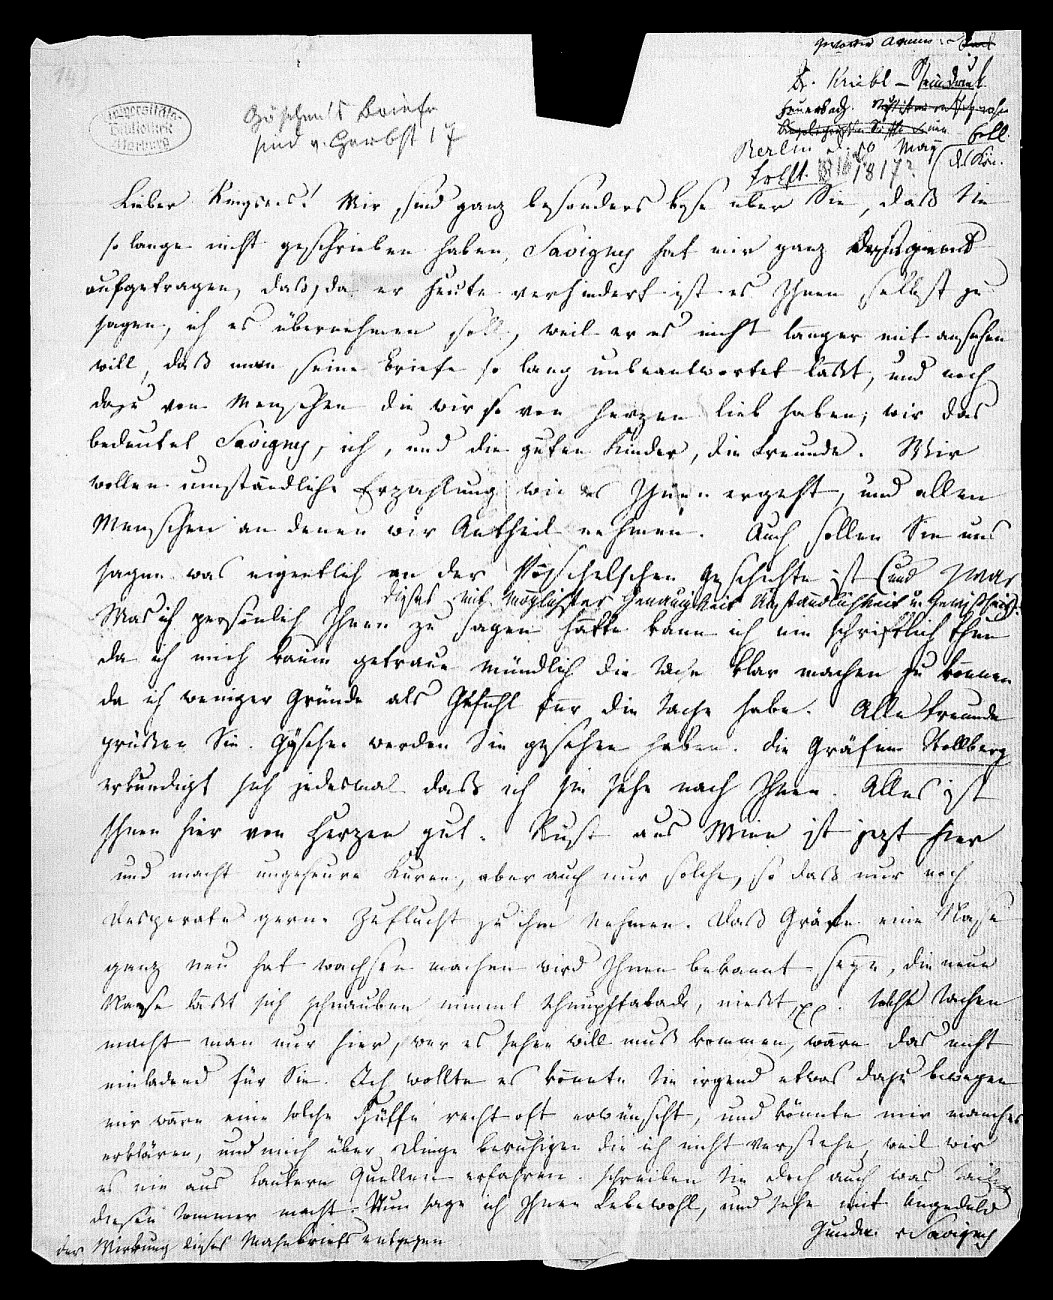 14)
Universitäts-
Bibliothek
Marburg
Göschen's Briefe
sind v. Herbst 17
Berlin d. 50 May
1817?
Lieber Ringseis! Wir sind ganz besonders böse über Sie, daß Sie
so lange nicht geschrieben haben, Savigny hat mir ganz
aufgetragen, daß, da er heute verhindert ist es Ihnen selbst zu
sagen, ich es übernehmen soll, weil er es nicht länger mit ansehen
will, daß man seine Briefe so lang unbeantwortet läßt, und noch
dazu von Menschen die wir so von Herzen lieb haben; wir das
bedeutet Savigny, ich, und die guten Kinder, die Freunde. Wir
wollen umständliche Erzählung wie es Ihnen ergeht, und allen
Menschen an denen wir Antheil nehmen. Auch sollen Sie uns
sagen was eigentlich an der Pöschelschen Geschichte ist (und zwar
dieses mit möglichster Genauigkeit Umständlichkeit u. Gewißheit).
Was ich persönlich Ihnen zu sagen hätte kann ich nie schriftlich thun
da ich mich kaum getraue mündlich die Sache klar machen zu können
da ich weniger Gründe als Gefühl für die Sache habe. Alle Freunde
grüßen Sie. Göschen werden Sie gesehen haben. Die Gräfinn Stollberg
erkundigt sich jedesmal daß ich sie sehe nach Ihnen. Alles ist
Ihnen hier von Herzen gut. Rust aus Wien ist jezt hier
und macht ungeheure Kuren, aber auch nur solche, so daß nur noch
Desperate gerne Zuflucht zu ihm nehmen. Daß Gräfe eine Nase
ganz neu hat wachsen machen wird Ihnen bekannt seyn, die neue
Nase läßt sich schnauben nimmt Schnupftaback, nießt, pp. Solche Sachen
macht man nur hier, wer es sehen will muß kommen, wäre das nicht
einladend für Sie. Ich wollte es könnte Sie irgend etwas dazu bewegen
mir wäre eine solche Hülfe recht oft erwünscht, und könnte mir manches
erklären, und mich über Dinge beruhigen die ich nicht verstehe, weil wir
es nie aus lautern Quellen erfahren. schreiben Sie doch auch was Sailer
diesen Sommer macht. Nun sage ich Ihnen Lebewohl, und sehe mit Ungeduld
der Wirkung dieses Mahnbriefs entgegen
Gunda v Savigny